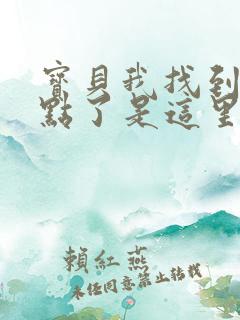 寶貝我找到
點了是這里
賴紅燕
未經同意禁止轉載